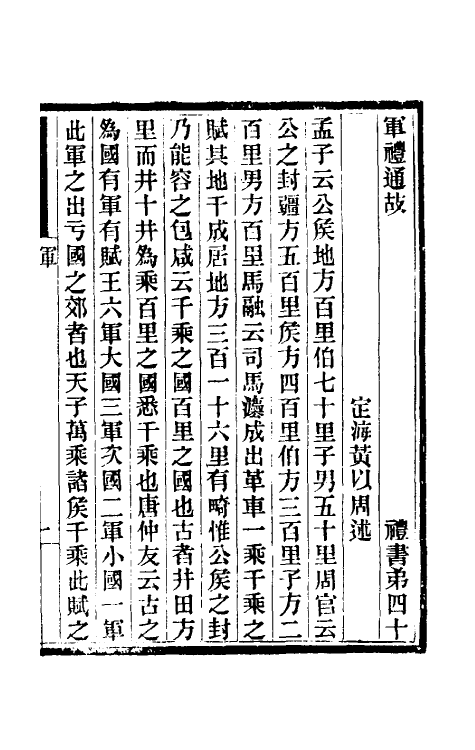 軍禮通故　禮書弟四十
定海黃以周述
孟子云公矦地方百里伯七十里子男五十里周官云
公之封疆方五百里矦方四百里伯方三百里子方二
百里男方百里馬融云司馬灋成出革車一乘千乘之
賦其地千成居地方三百一十六里有畸惟公矦之封
乃能容之包咸云千乘之國百里之國也古者井田方
里而井十井爲乘百里之國悉千乘也唐仲友云古之
爲國有軍有賦王六軍大國三軍次國二軍小國一軍
此軍之出亏國之郊者也天子萬乘諸矦千乘此賦之
軍
一